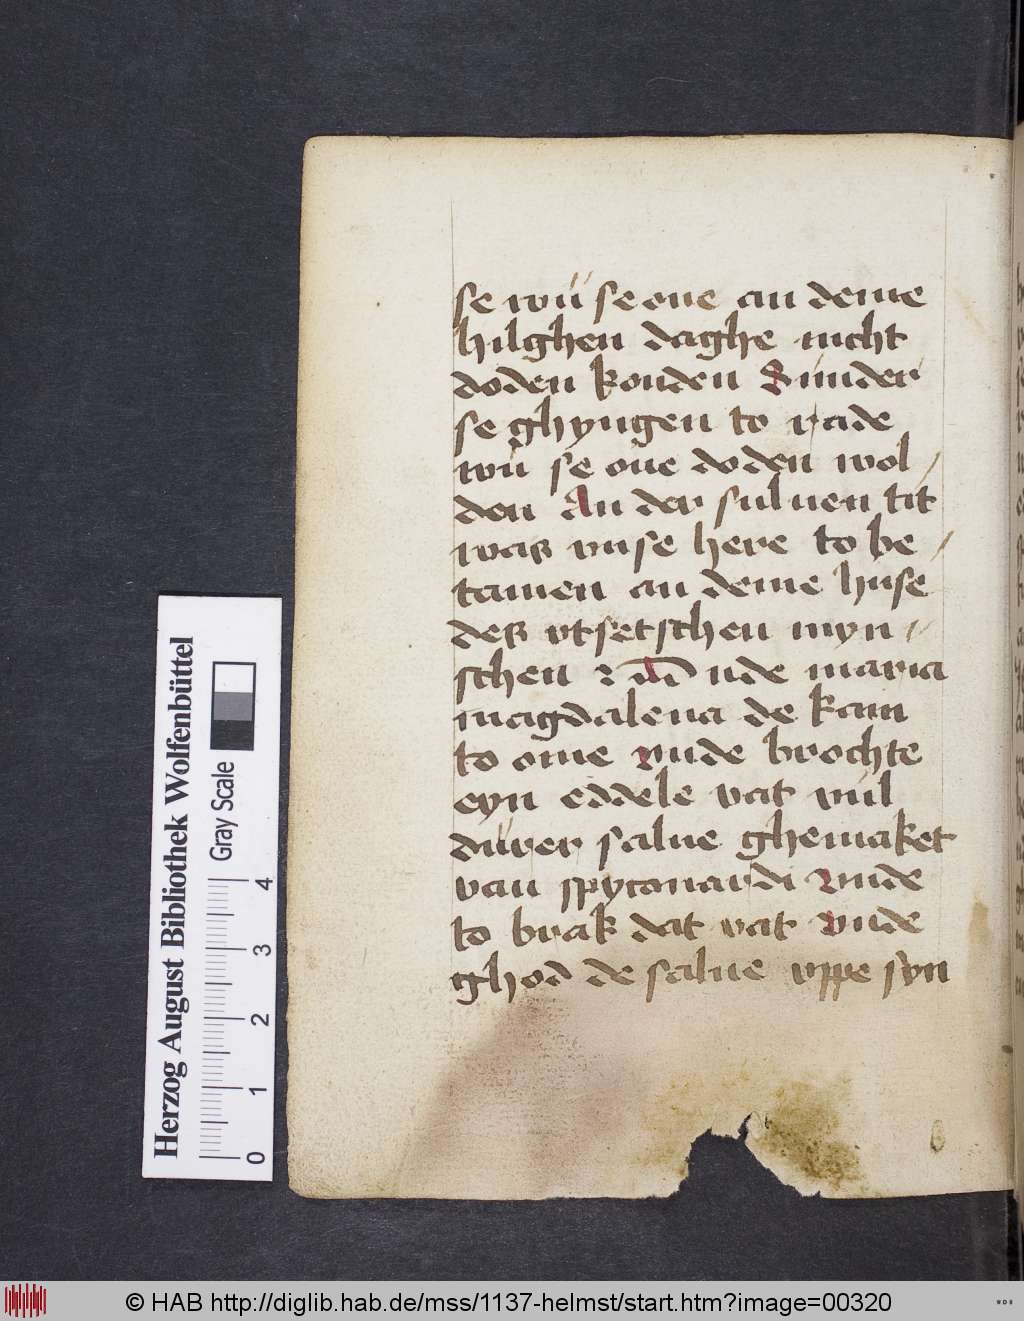 se wu se one an deme
hilghen daghe nicht
doden konden Sunder
se ghyngen to rade
wu se one doden wol
den An der suluen tit
was vnse here to be
tamen an deme huse
des vtsetschen myn
schen nde maria
magdalena de kam
to ome vnde brochte
eyn eddele vat vul
durer salue ghemaket
van spycanardi vnde
to brak dat vat vnde
ghod de salue vppe syn
Herzog August Bibliothek Wolfenbüttel
Gray Scale
0 1 2 3 4
© HAB http://diglib.hab.de/mss/1137-helmst/start.htm?image=00320